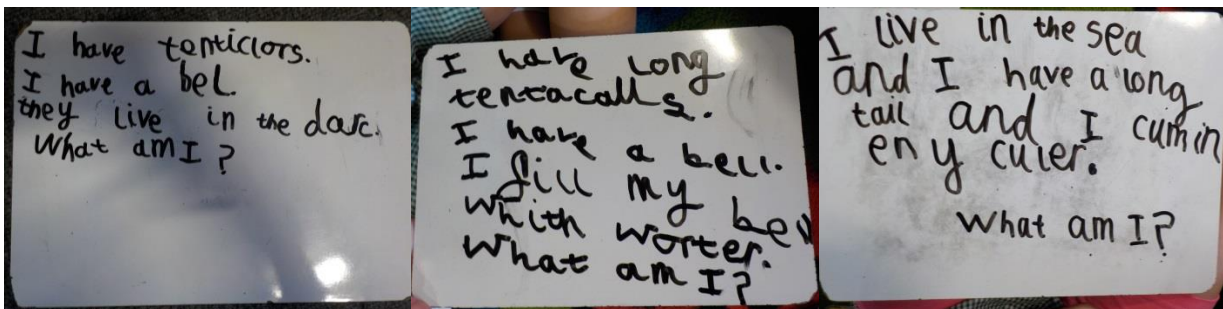 I have tenticlors.
I have a bel.
they live in the darc.
What am I?
I have long
tentacalls.
I have a bell.
I fill my bell
whith worter.
What am I?
I live in the sea
and I have a long
tail and I cum in
eny culer.
What am I?